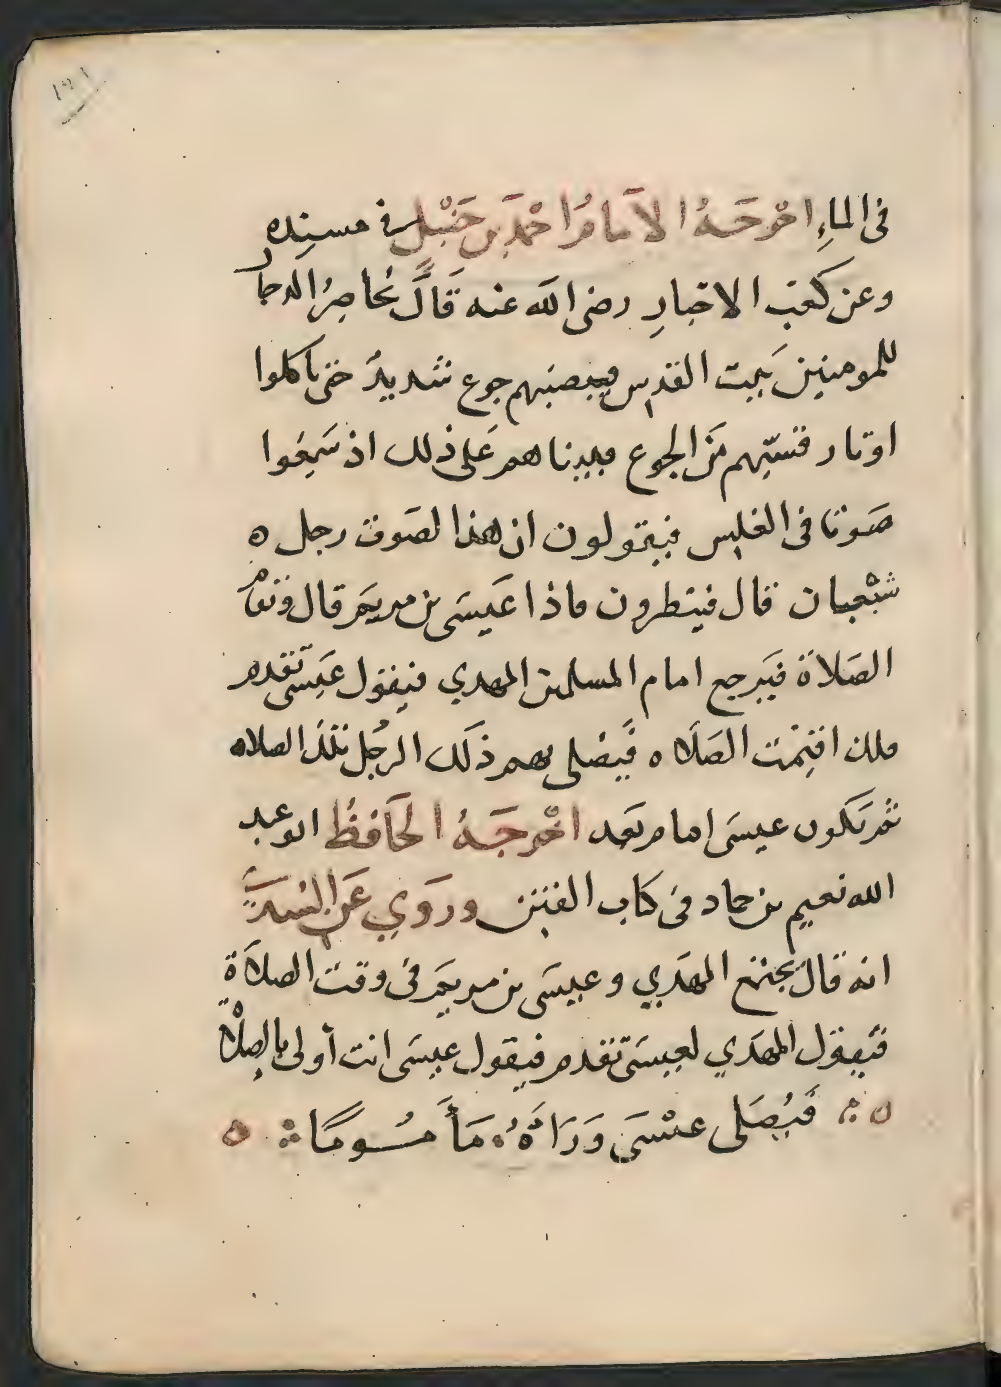 ١٢١
فى الماءِ اخرَجَهُ الامَامُ احْمَد بن حَنْبَل فى مسنِدِه
وعن كعْب الاحبارِ رضى الله عنه قَالَ يُحاصِرُ الدجال
للمومنين بَبيت القدس فيصيبهم جوع شديدٌ حتى ياكلوا
اوتار قسيّهم مَن الجوع فبينا هم عَلى ذلك اذ سَمِعُوا
صَوتا فى الغلس فيقولون ان هذا لصَوت رجل ه
شبْعَان قال فينظرون فاذا عَيسَى بن مريَم قال وتقام
الصَلاة فيَرجع امام المسلمين المهدي فيقول عَيسَى تقدم
فلك اقيمْت الصَلاه فَيصْلى بهم ذلَك الرجُل تلك الصلاه
ثم يَكون عيسَى امام بَعد اخْرجَهُ الحَافظُ ابو عبد
الله نعيم بن حماد فى كتاب الفتن ورَوي عَن السُدّي
انه قالَ يجتمع المهَدي وعيسَى بن مريَم فى وقت الصلاَة
فيَقول المهَدي لعيسَى تَقدم فيقول عيسَى انت أولى بالصلاة
فَيُصَلى عيْسَى وَرَاءَهُ مَأمُومًا ه